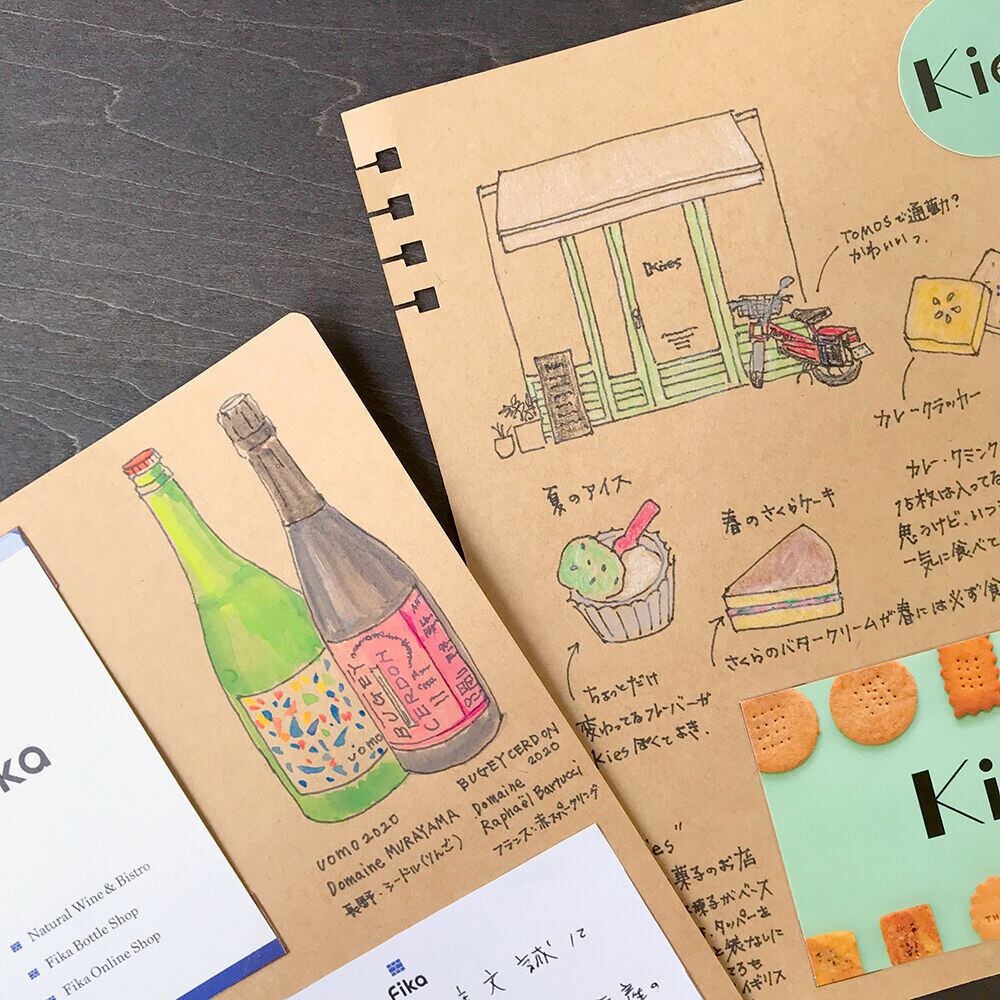 Kies
TOMOSで通勤?
かわいいっ.
Kies
カレークラッカー
カレー・クミン
15枚は入ってる
思うけど、いつ
一気に食べて
夏のアイス
春のさくらケーキ
さくらのバタークリームが春には必ず食
ちょっとだけ
変わってるフレーバーが
Kiesぽくてよき.
Ki
菓子のお店
菓子がベース
タッパーを
イギリス
BUGEY
CERDON
uomo
uomo 2020
Domaine MURAYAMA
長野・シードル(りんご)
BUGEY CERDON
2020
Domaine
Raphaël Bartucci
フランス・赤スパークリング
ka
Natural Wine & Bistro
Fika Bottle Shop
Fika Online Shop
fika
文
の